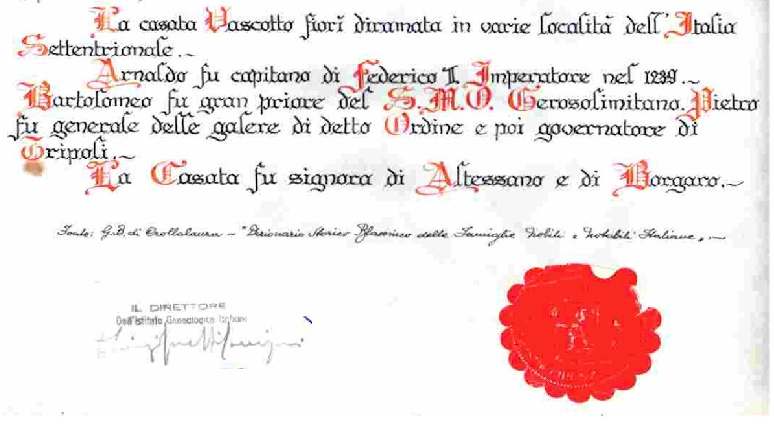 La casata Vascotto fiorì diramata in varie località dell'Italia
Settentrionale.~
Arnaldo fu capitano di Federico II. Imperatore nel 1239.~
Bartolomeo fu gran priore del S.M.O. Gerosolimitano. Pietro
fu generale delle galere di detto Ordine e poi governatore di
Tripoli.~
La Casata fu signora di Altessano e di Borgaro.~
Fonte: G.B. di Crollalanza - "Dizionario Storico Blasonico delle Famiglie Nobili e Notabili Italiane".~
IL DIRETTORE
Dell'Istituto Genealogico Italiano